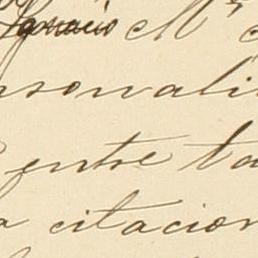 Ignacio M.
rsonali
entre ta
a citacion